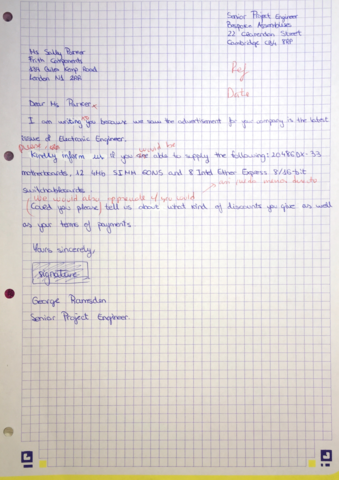 Senior Project Engineer
Bespoke Assemblies
22 Clarendon Street
Cambridge
Ms Sally Parker
Frith Components
Road
London N1
Ref
Date
Dear Ms Parker
I am writing you because we saw the advertisement for your company in the latest
to
issue of Electronic Engineer.
please would be
Kindly inform us if you are able to supply the following: 20486DX-33
motherboards, 12 4Mb SIMM 60NS and 8 Intel Ether Express 8/16-bit
switchaboards.
We would also appreciate if you would
Could you please tell us about what kind of discounts you give as well
as your terms of payments.
Yours sincerely,
signature
George Ramsden
Senior Project Engineer